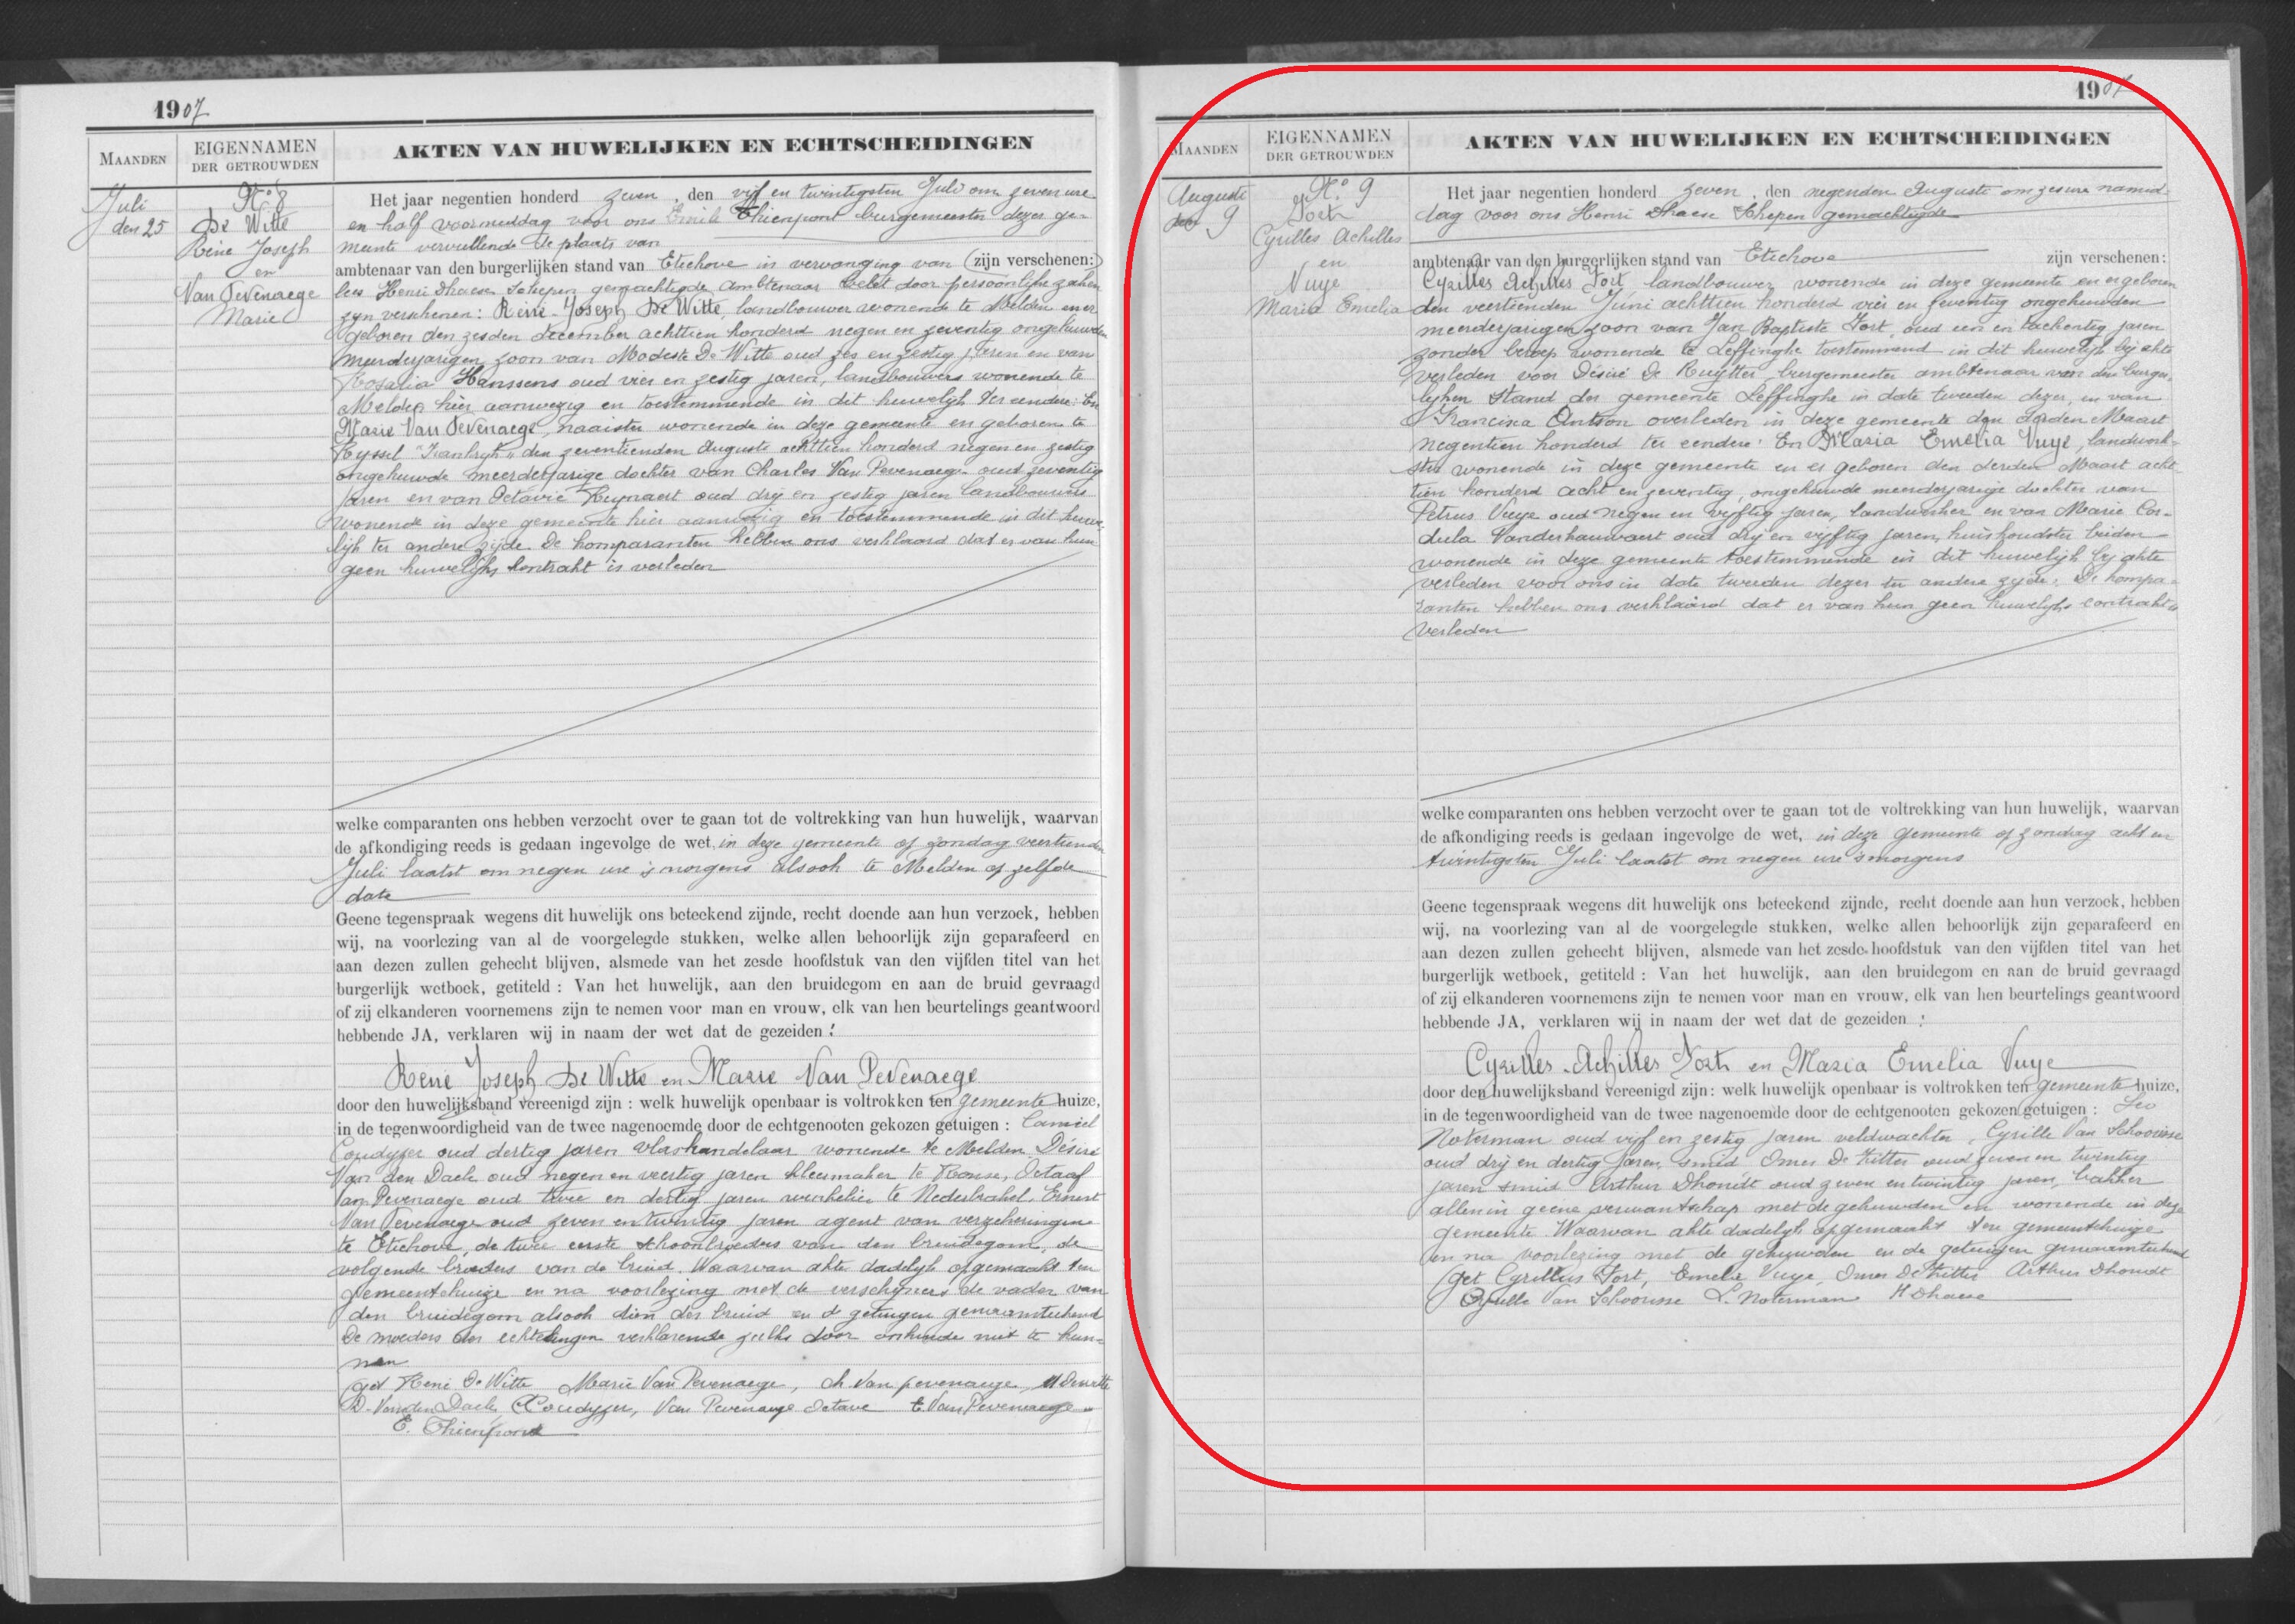 1907
MAANDEN
EIGENNAMEN
DER GETROUWDEN
AKTEN VAN HUWELIJKEN EN ECHTSCHEIDINGEN
Juli
den 25
N.º 8
De Witte
René Joseph
en
Van Pevenaege
Marie
Het jaar negentien honderd zeven, den vijf en twintigsten Juli om zeven ure
en half voormiddag voor ons Emile Thienpont burgemeester dezer ge-
meente vervullende de plaats van
ambtenaar van den burgerlijken stand van Etichove in vervanging van (zijn verschenen:)
Henri Dhaese Schepen gemachtigde ambtenaar belet door persoonlijke zaken
zyn verschenen: René-Joseph De Witte, landbouwer wonende te Melden en er
geboren den zesden december achttien honderd negen en zeventig ongehuwden
meerderjarigen zoon van Modeste De Witte oud zes en zestig jaren en van
Rosalia Hanssens oud vier en zestig jaren, landbouwers wonende te
Melden hier aanwezig en toestemmende in dit huwelijk ter eendere: En
Marie Van Pevenaege, naaister wonende in deze gemeente en geboren te
Ryssel "Frankrijk" den zeventienden Auguste achttien honderd negen en zestig
ongehuwde meerderjarige dochter van Charles Van Pevenaege oud zeventig
jaren en van Octavie Reynaert oud dry en zestig jaren landbouwers
wonende in deze gemeente hier aanwezig en toestemmende in dit huwe-
lijk ter andere zijde. De komparanten hebben ons verklaard dat er van hun
geen huwelijks kontrakt is verleden
welke comparanten ons hebben verzocht over te gaan tot de voltrekking van hun huwelijk, waarvan
de afkondiging reeds is gedaan ingevolge de wet, in deze gemeente op zondag veertienden
Juli laatst om negen ure 's morgens alsook te Melden op zelfde
date
Geene tegenspraak wegens dit huwelijk ons beteekend zijnde, recht doende aan hun verzoek, hebben
wij, na voorlezing van al de voorgelegde stukken, welke allen behoorlijk zijn geparafeerd en
aan dezen zullen gehecht blijven, alsmede van het zesde hoofdstuk van den vijfden titel van het
burgerlijk wetboek, getiteld : Van het huwelijk, aan den bruidegom en aan de bruid gevraagd
of zij elkanderen voornemens zijn te nemen voor man en vrouw, elk van hen beurtelings geantwoord
hebbende JA, verklaren wij in naam der wet dat de gezeiden :
René Joseph De Witte en Marie Van Pevenaege
door den huwelijksband vereenigd zijn : welk huwelijk openbaar is voltrokken ten gemeente huize,
in de tegenwoordigheid van de twee nagenoemde door de echtgenooten gekozen getuigen : Camiel
Coudyzer oud dertig jaren vlashandelaar wonende te Melden, Désiré
Van den Daele oud negen en veertig jaren kleermaker te Ronse, Octaaf
Van Pevenaege oud twee en dertig jaren winkelier te Nederbrakel Ernest
Van Pevenaege oud zeven en twintig jaren agent van verzekeringen
te Etichove, de twee eerste schoonbroeders van den bruidegom, de
volgende broeders van de bruid. Waarvan akte dadelijk opgemaakt ten
gemeentehuize en na voorlezing met de verschijners de vader van
den bruidegom alsook dien der bruid en de getuigen genaamteekend
De moeders der echtelingen verklarende zulks door onkunde niet te kun-
nen
(get René De Witte Marie Van Pevenaege, Ch. Van pevenaege, M Dewitte
D. Vanden Daele C Coudyzer, Van Pevenaege Octave E. Van Pevenaege
E. Thienpont
1907
MAANDEN
EIGENNAMEN
DER GETROUWDEN
AKTEN VAN HUWELIJKEN EN ECHTSCHEIDINGEN
Auguste
den 9
N.º 9
Fort
Cyrilles Achilles
en
Vuye
Maria Emelia
Het jaar negentien honderd zeven, den negenden Auguste om zes ure namid-
dag voor ons Henri Dhaese Schepen gemachtigde
ambtenaar van den burgerlijken stand van Etichove zijn verschenen:
Cyrilles Achilles Fort, landbouwer wonende in deze gemeente en er geboren
den veertienden Juni achttien honderd vier en zeventig ongehuwden
meerderjarigen zoon van Jan Baptiste Fort oud een en tachentig jaren
zonder beroep wonende te Leffinghe toestemmend in dit huwelijk bij akte
verleden voor Désiré De Ruytter, burgemeester ambtenaar van den burger-
lijken Stand der gemeente Leffinghe in date tweeden dezer, en van
Francisca Antson overleden in deze gemeente den derden Maart
negentien honderd ter eendere: En Maria Emelia Vuye, landwerk-
ster wonende in deze gemeente en er geboren den derden Maart acht
tien honderd acht en zeventig, ongehuwde meerderjarige dochter van
Petrus Vuye oud negen en vyftig jaren, landwerker en van Marie Cor-
dula Vanderhauwaert oud dry en vyftig jaren, huishoudster beiden
wonende in deze gemeente toestemmende in dit huwelijk bij akte
verleden voor ons in date tweeden dezer ter andere zijde. De kompa-
ranten hebben ons verklaard dat er van hun geen huwelijks contrakt is
verleden
welke comparanten ons hebben verzocht over te gaan tot de voltrekking van hun huwelijk, waarvan
de afkondiging reeds is gedaan ingevolge de wet, in deze gemeente op zondag acht en
twintigsten Juli laatst om negen ure 's morgens
Geene tegenspraak wegens dit huwelijk ons beteekend zijnde, recht doende aan hun verzoek, hebben
wij, na voorlezing van al de voorgelegde stukken, welke allen behoorlijk zijn geparafeerd en
aan dezen zullen gehecht blijven, alsmede van het zesde hoofdstuk van den vijfden titel van het
burgerlijk wetboek, getiteld : Van het huwelijk, aan den bruidegom en aan de bruid gevraagd
of zij elkanderen voornemens zijn te nemen voor man en vrouw, elk van hen beurtelings geantwoord
hebbende JA, verklaren wij in naam der wet dat de gezeiden :
Cyrilles Achilles Fort en Maria Emelia Vuye
door den huwelijksband vereenigd zijn: welk huwelijk openbaar is voltrokken ten gemeente huize,
in de tegenwoordigheid van de twee nagenoemde door de echtgenooten gekozen getuigen : Leo
Noterman oud vijf en zestig jaren veldwachter, Cyrille Van Schoorisse
oud drij en dertig jaren, smid Omer De Kitter oud zeven en twintig
jaren smid Arthur Dhondt oud zeven en twintig jaren, bakker
allen in geene vermantschap met de gehuwden en wonende in deze
gemeente Waarvan akte dadelyk opgemaakt ten gemeentehuize
en na voorlezing met de gehuwden en de getuigen genaamteekend
(get Cyrillus Fort, Emelie Vuye, Omer De Kitter Arthur Dhondt
Cyrille Van Schoorisse L. Noterman H Dhaese